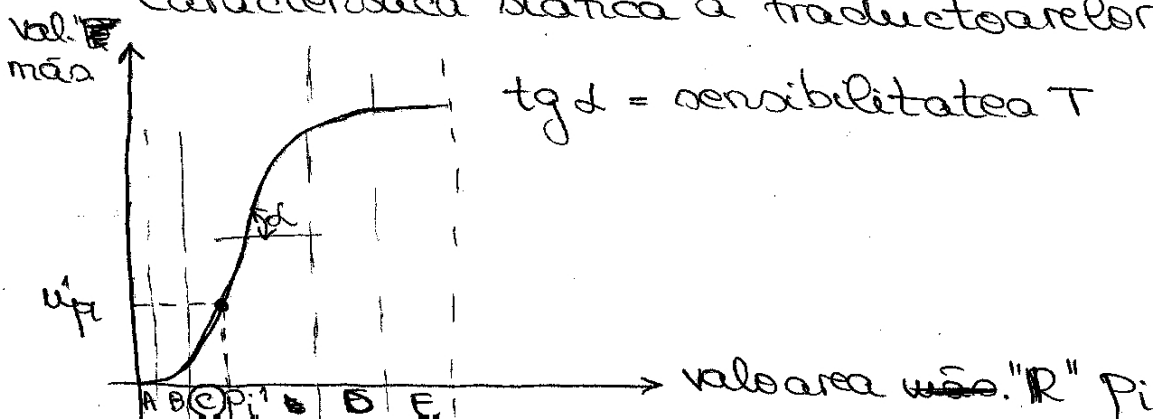 Caracteristica statică a traductoarelor
val.
măs.
tg α = sensibilitatea T
α
u'pi
A B C Pi' D E
valoarea "R" Pi